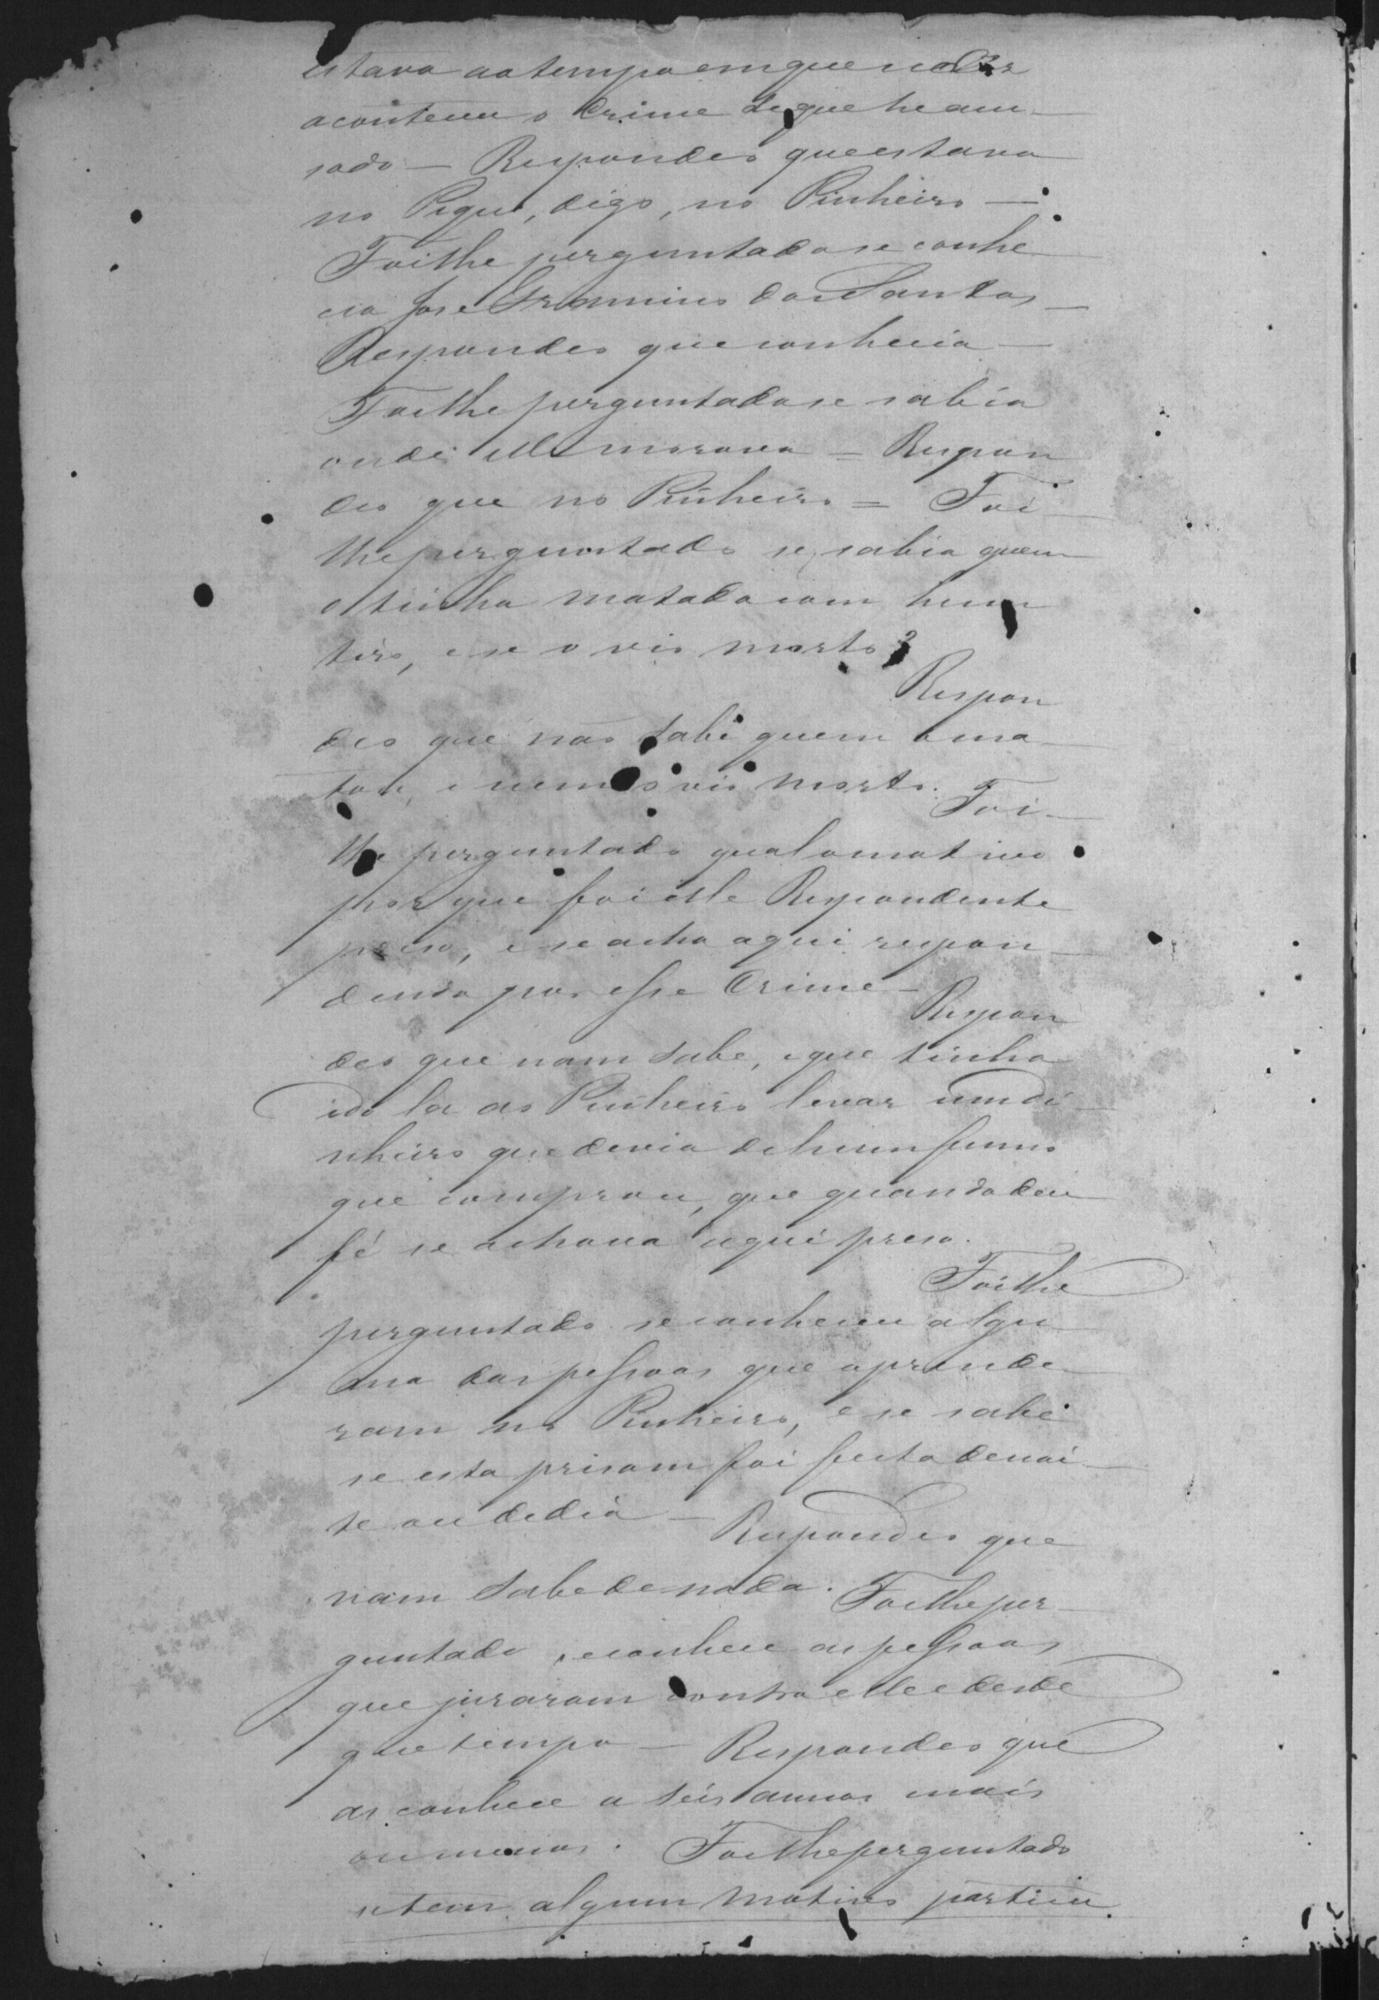 estava ao tempo em que
aconteceu o Crime de que he acu
sado — Respondeo que estava
no Pequi, digo, no Pinheiro —
Foilhe perguntado se conhe
cia Jose Francisco dos Santos
Respondeo que conhecia —
Foilhe perguntado se sabia
onde elle morava = Respon
deo que no Pinheiro = Foi
lhe perguntado se sabia quem
o tinha matado com hum
tiro, e se o vio morto?
Respon
deo que não sabe quem o ma
tou, e nem o vio morto. Foi
lhe perguntado qual o motivo
por que foi elle Respondente
preso, e se acha aqui respon
dendo por esse Crime —
Respon
deo que nam sabe, e que tinha
ido la ao Pinheiro levar um di
nheiro que devia de hum fumo
que comprou, que quando deu
fé se achava aqui preso.
Foilhe
perguntado se conheceu algu
ma das pessoas que aprende
ram no Pinheiro, e se sabe
se esta prisam foi feita de noi
te ou de dia — Respondeo que
nam sabe de nada. Foilhe per
guntado se conhece as pessoas
que juraram contra elle e desde
que tempo — Respondeo que
as conhece a seis annos mais
ou menos. Foilhe perguntado
se tem algum motivo particu